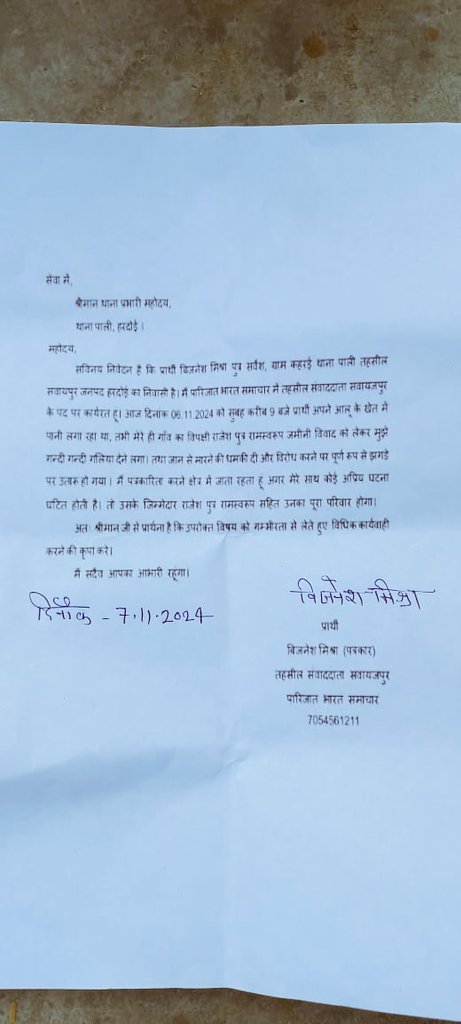 सेवा में,
श्रीमान थाना प्रभारी महोदय,
थाना पाली, हरदोई ।
महोदय,
सविनय निवेदन है कि प्रार्थी बिजनेश मिश्रा पुत्र सर्वेश, ग्राम कहरई थाना पाली तहसील
सवायजपुर जनपद हरदोई का निवासी है। मैं पारिजात भारत समाचार में तहसील संवाददाता सवायजपुर
के पद पर कार्यरत हूं। आज दिनांक 06.11.2024 को सुबह करीब 9 बजे प्रार्थी अपने आलू के खेत में
पानी लगा रहा था, तभी मेरे ही गाँव का विपक्षी राजेश पुत्र रामस्वरूप जमीनी विवाद को लेकर मुझे
गन्दी गन्दी गलिया देने लगा। तथा जान से मारने की धमकी दी और विरोध करने पर पूर्ण रूप से झगड़े
पर उतारू हो गया। मैं पत्रकारिता करने क्षेत्र में जाता रहता हूं अगर मेरे साथ कोई अप्रिय घटना
घटित होती है। तो उसके जिम्मेदार राजेश पुत्र रामस्वरूप सहित उनका पूरा परिवार होगा।
अतः श्रीमान जी से प्रार्थना है कि उपरोक्त विषय को गम्भीरता से लेते हुए विधिक कार्यवाही
करने की कृपा करे।
मैं सदैव आपका आभारी रहूंगा।
बिजनेश मिश्रा
दिनाँक - 7.11.2024
प्रार्थी
बिजनेश मिश्रा (पत्रकार)
तहसील संवाददाता सवायजपुर
पारिजात भारत समाचार
7054561211